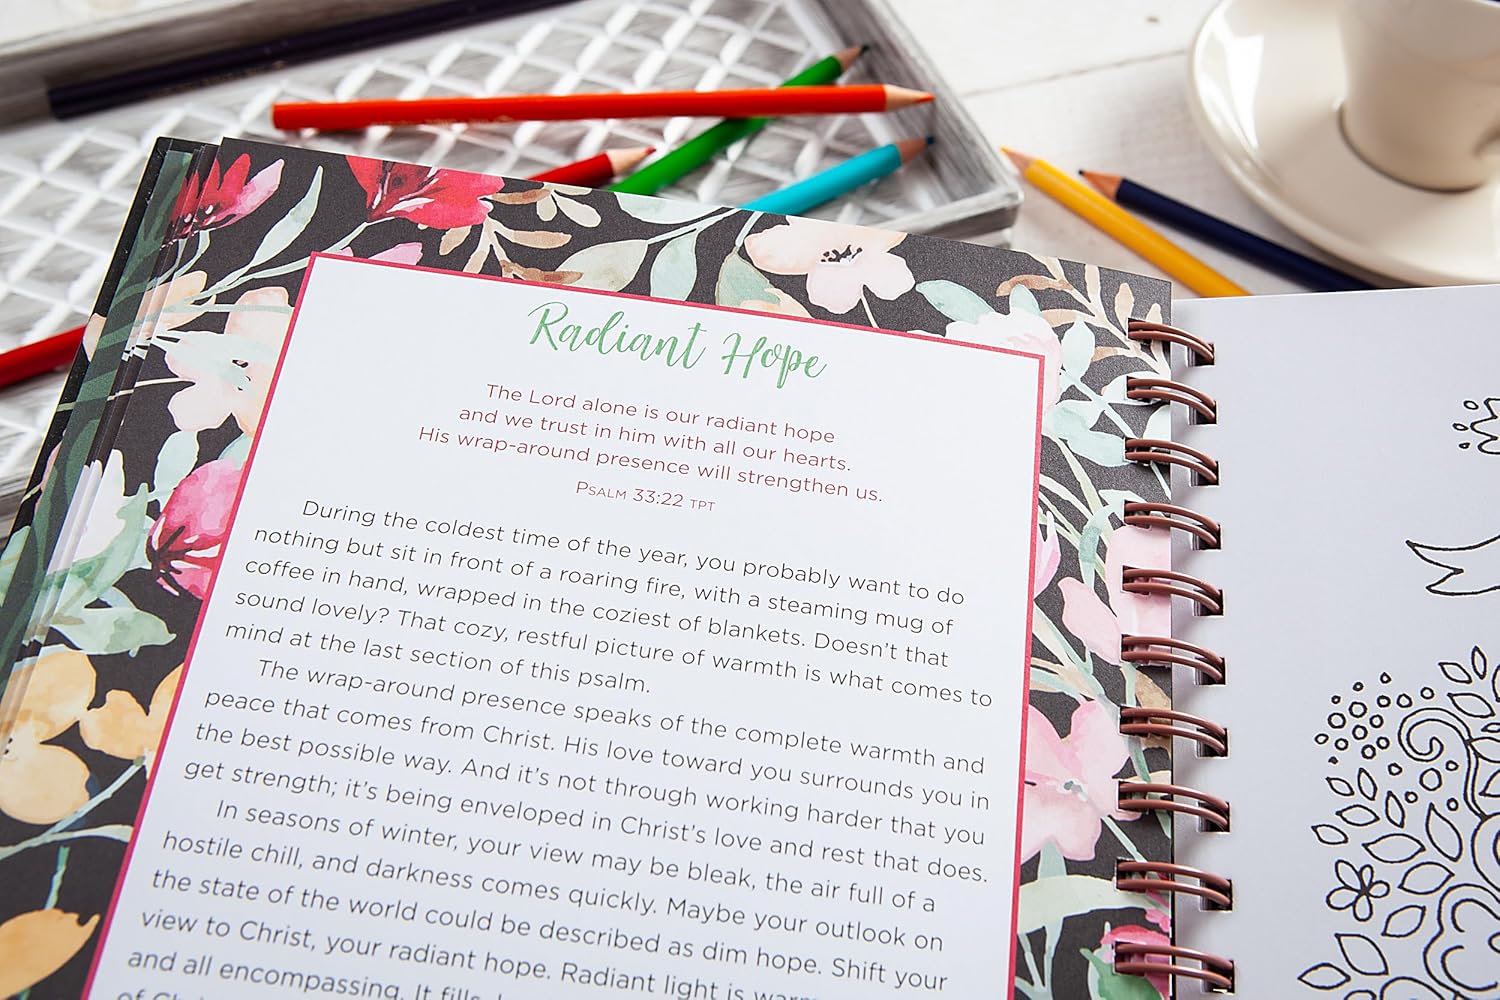 Radiant Hope
The Lord alone is our radiant hope
and we trust in him with all our hearts.
His wrap-around presence will strengthen us.
Psalm 33:22 TPT
During the coldest time of the year, you probably want to do
nothing but sit in front of a roaring fire, with a steaming mug of
coffee in hand, wrapped in the coziest of blankets. Doesn't that
sound lovely? That cozy, restful picture of warmth is what comes to
mind at the last section of this psalm.
The wrap-around presence speaks of the complete warmth and
peace that comes from Christ. His love toward you surrounds you in
the best possible way. And it's not through working harder that you
get strength; it's being enveloped in Christ's love and rest that does.
In seasons of winter, your view may be bleak, the air full of a
hostile chill, and darkness comes quickly. Maybe your outlook on
the state of the world could be described as dim hope. Shift your
view to Christ, your radiant hope. Radiant light is warm
and all encompassing. It fills
of